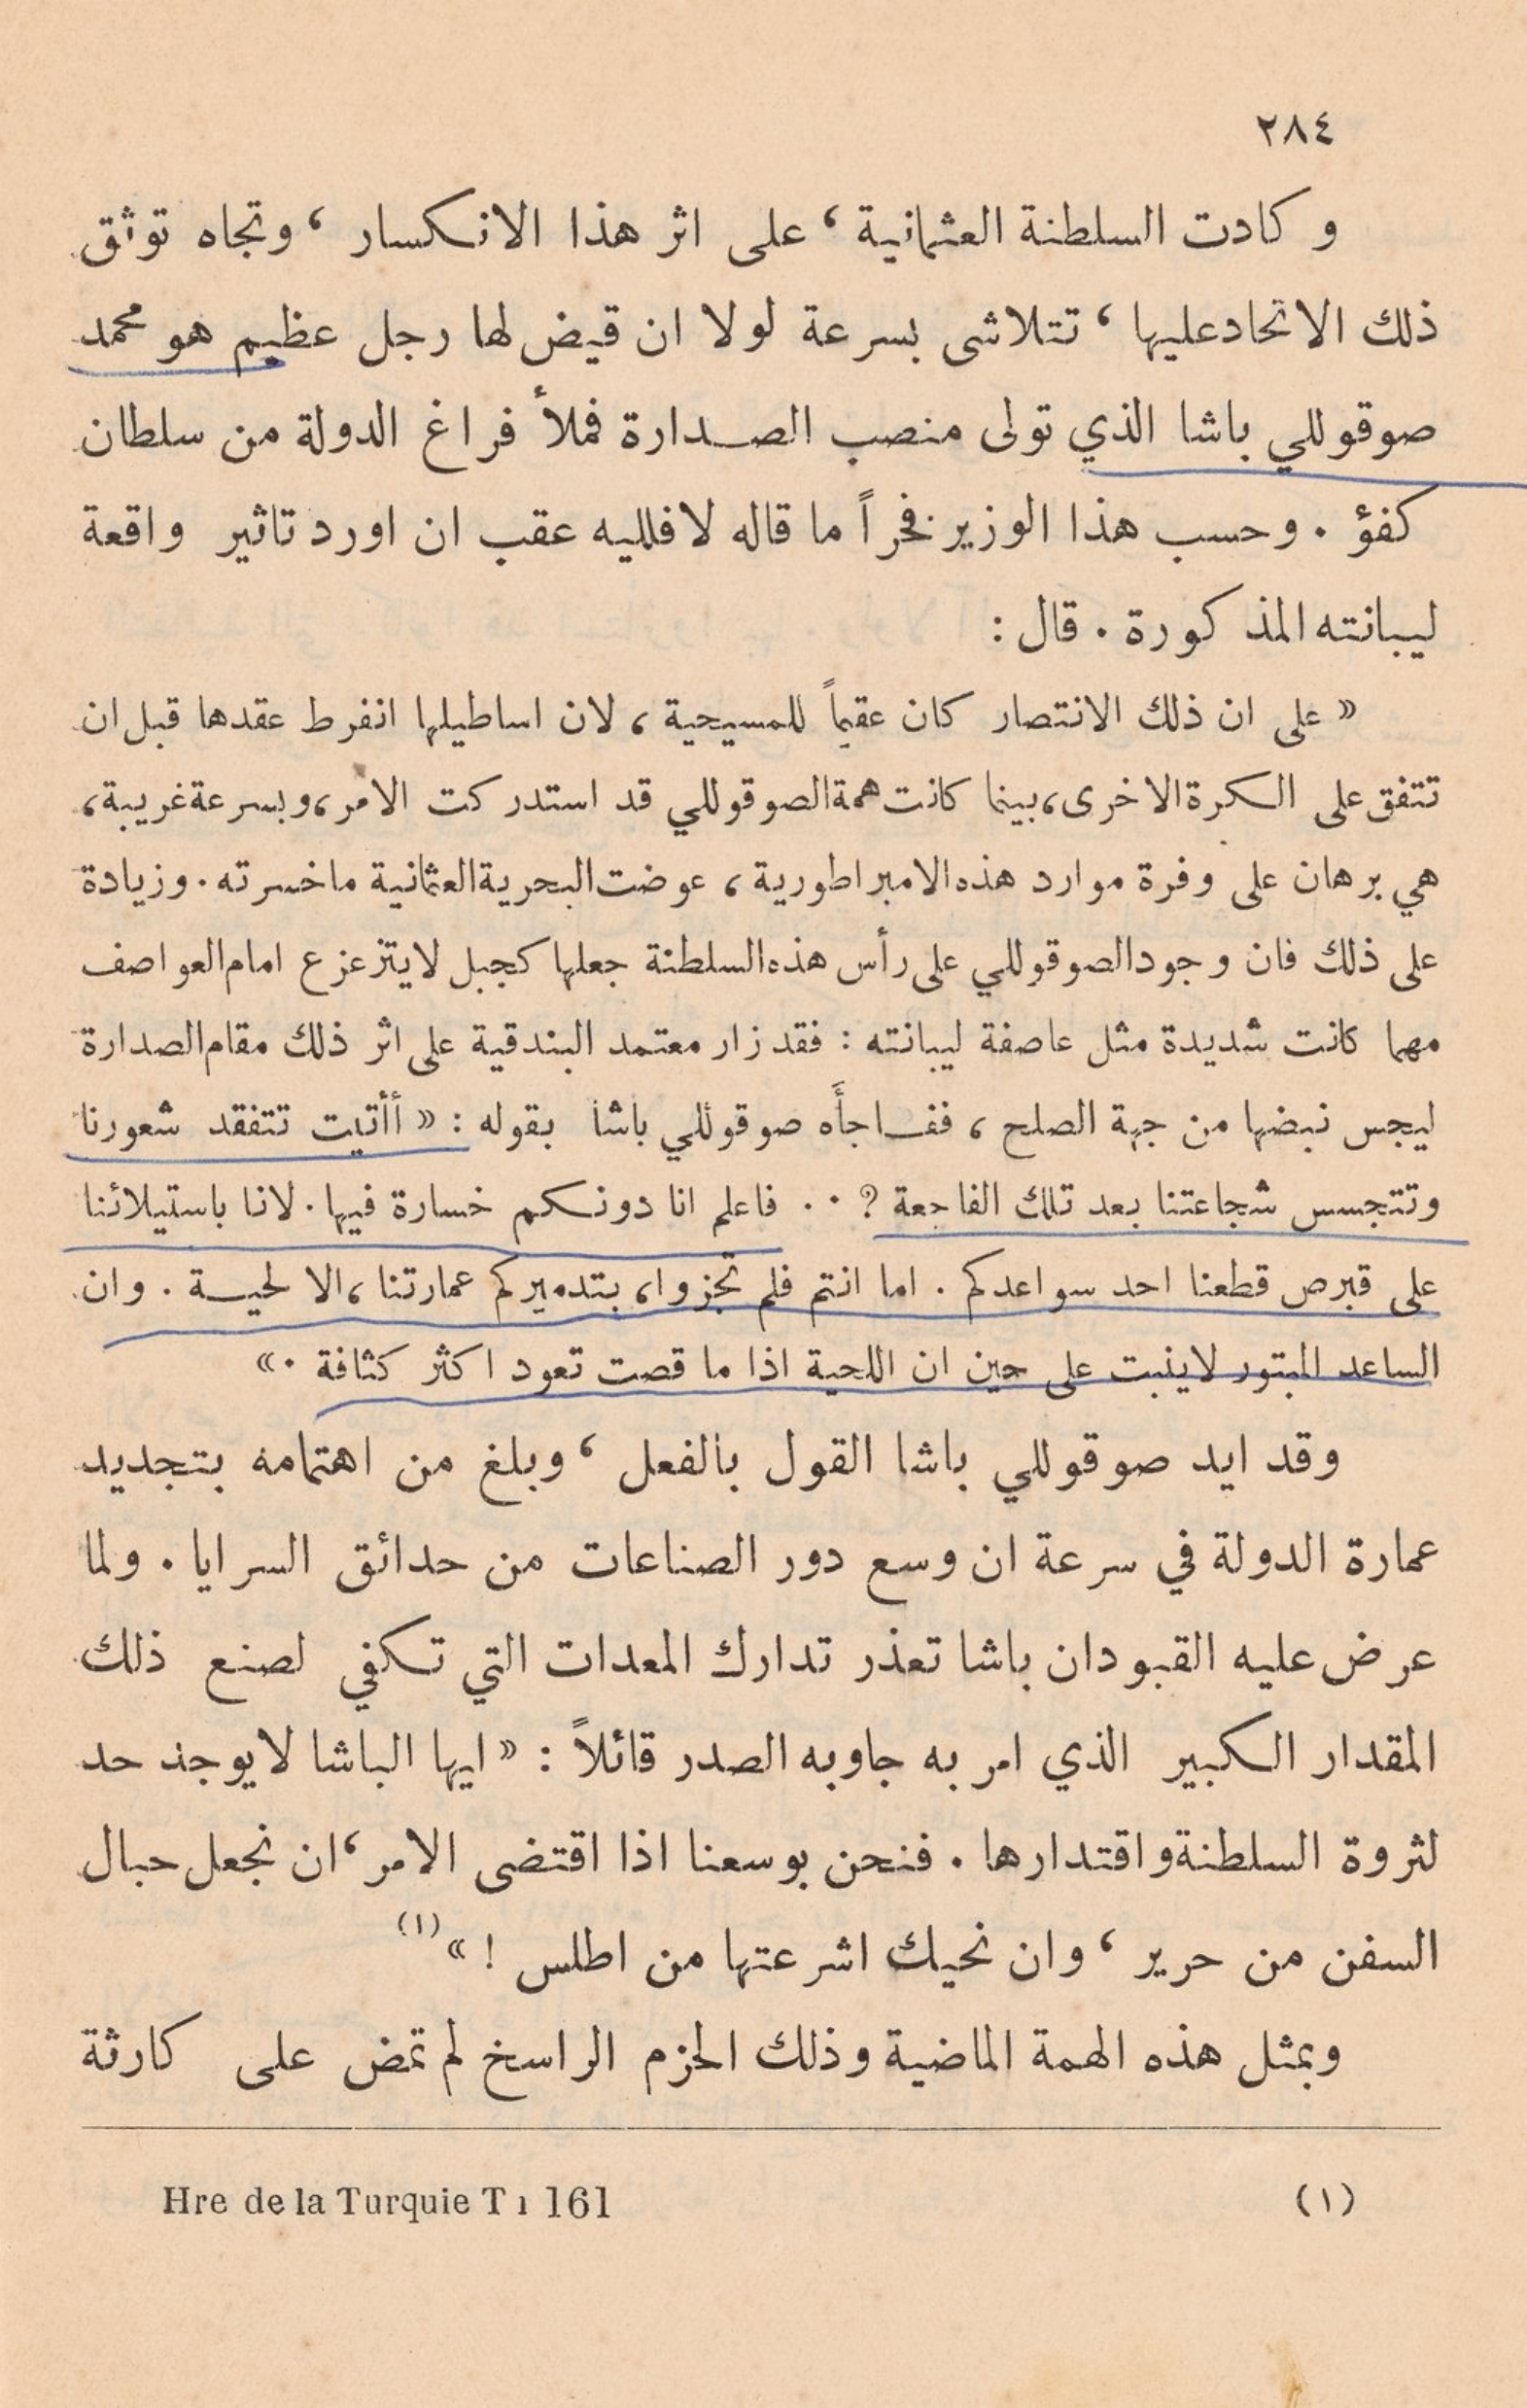 ٢٨٤
و كادت السلطنة العثمانية ، على اثر هذا الانكسار ، وتجاه توثق
ذلك الاتحاد عليها ، تتلاشى بسرعة لولا ان قيض لها رجل عظيم هو محمد
صوقوللي باشا الذي تولى منصب الصدارة فملأ فراغ الدولة من سلطان
كفؤ . وحسب هذا الوزير فخراً ما قاله لافلليه عقب ان اورد تاثير واقعة
ليبانته المذكورة . قال :
« على ان ذلك الانتصار كان عقيماً للمسيحية ، لان اساطيلها انفرط عقدها قبل ان
تتفق على الكرة الاخرى ، بينما كانت همة الصوقوللي قد استدركت الامر ، وبسرعة غريبة ،
هي برهان على وفرة موارد هذه الامبراطورية ، عوضت البحرية العثمانية ما خسرته . وزيادة
على ذلك فان وجود الصوقوللي على رأس هذه السلطنة جعلها كجبل لايتزعزع امام العواصف
مهما كانت شديدة مثل عاصفة ليبانته : فقد زار معتمد البندقية على اثر ذلك مقام الصدارة
ليجس نبضها من جهة الصلح ، ففاجأَه صوقوللي باشا بقوله : « أأتيت تتفقد شعورنا
وتتجسس شجاعتنا بعد تلك الفاجعة ? . . فاعلم انا دونكم خسارة فيها . لانا باستيلائنا
على قبرص قطعنا احد سواعدكم . اما انتم فلم تجزوا ، بتدميركم عمارتنا ، الا لحية . وان
الساعد المبتور لاينبت على حين ان اللحية اذا ما قصت تعود اكثر كثافة . »
وقد ايد صوقوللي باشا القول بالفعل ، وبلغ من اهتمامه بتجديد
عمارة الدولة في سرعة ان وسع دور الصناعات من حدائق السرايا . ولما
عرض عليه القبودان باشا تعذر تدارك المعدات التي تكفي لصنع ذلك
المقدار الكبير الذي امر به جاوبه الصدر قائلاً : « ايها الباشا لايوجد حد
لثروة السلطنة واقتدارها . فنحن بوسعنا اذا اقتضى الامر ، ان نجعل حبال
السفن من حرير ، وان نحيك اشرعتها من اطلس ! » (١)
وبمثل هذه الهمة الماضية وذلك الحزم الراسخ لم تمض على كارثة
(١) Hre de la Turquie T 1 161